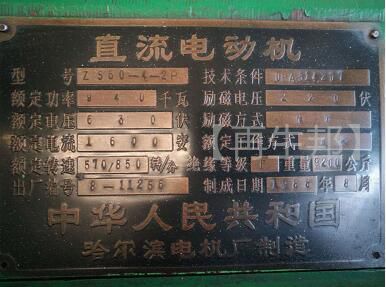 直流电动机
型号 Z560-4-2P 技术条件
额定功率 940 千瓦 励磁电压 220 伏
额定电压 630 伏 励磁方式
额定电流 1600 安 额定工作方式
额定转速 570/850 转/分 绝缘等级 重量 9200 公斤
出厂编号 8-11256 制成日期 1988 年 8 月
中华人民共和国
哈尔滨电机厂制造